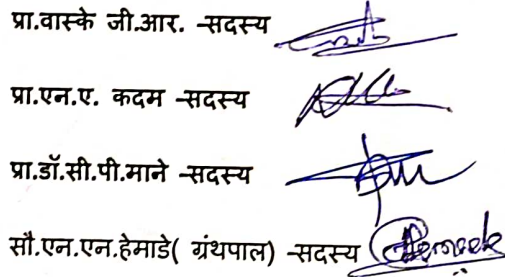 प्रा.वास्के जी.आर. -सदस्य
प्रा.एन.ए. कदम -सदस्य
प्रा.डॉ.सी.पी.माने -सदस्य
सौ.एन.एन.हेमाडे( ग्रंथपाल) -सदस्य